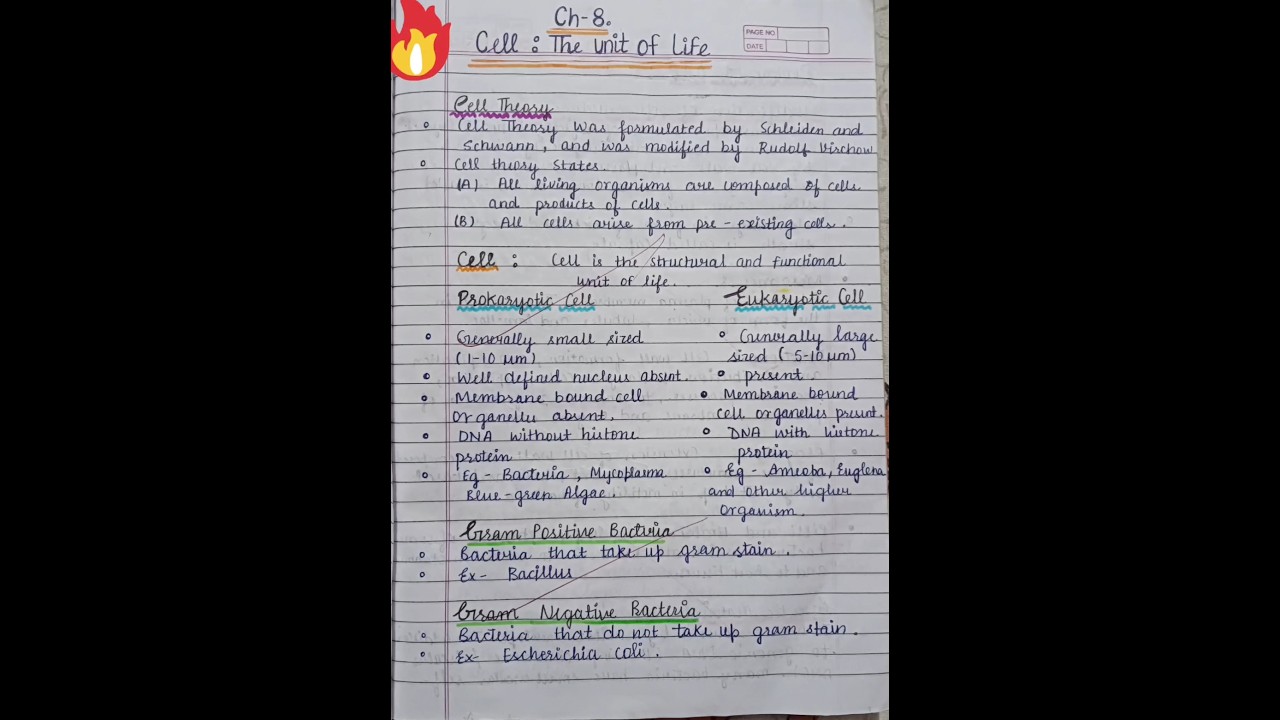 Ch-8.
Cell : The unit of life
PAGE NO.
DATE
Cell Theory
Cell Theory was formulated by Schleiden and
Schwann, and was modified by Rudolf Virchow
Cell theory states.
(A) All living organisms are composed of cells
and products of cells.
(B) All cells arise from pre-existing cells.
Cell : Cell is the structural and functional
unit of life.
Prokaryotic Cell
Generally small sized
(1-10 μm)
Well defined nucleus absent.
Membrane bound cell
organelles absent.
DNA without histone
protein
Eg - Bacteria, Mycoplasma
Blue-green Algae.
Eukaryotic Cell
Generally large
sized (5-10 μm)
present.
Membrane bound
cell organelles present.
DNA with histone
protein
Eg - Ameoba, Euglena
and other higher
organism.
Gram Positive Bacteria
Bacteria that take up gram stain.
Ex- Bacillus
Gram Negative Bacteria
Bacteria that do not take up gram stain.
Ex- Escherichia coli.